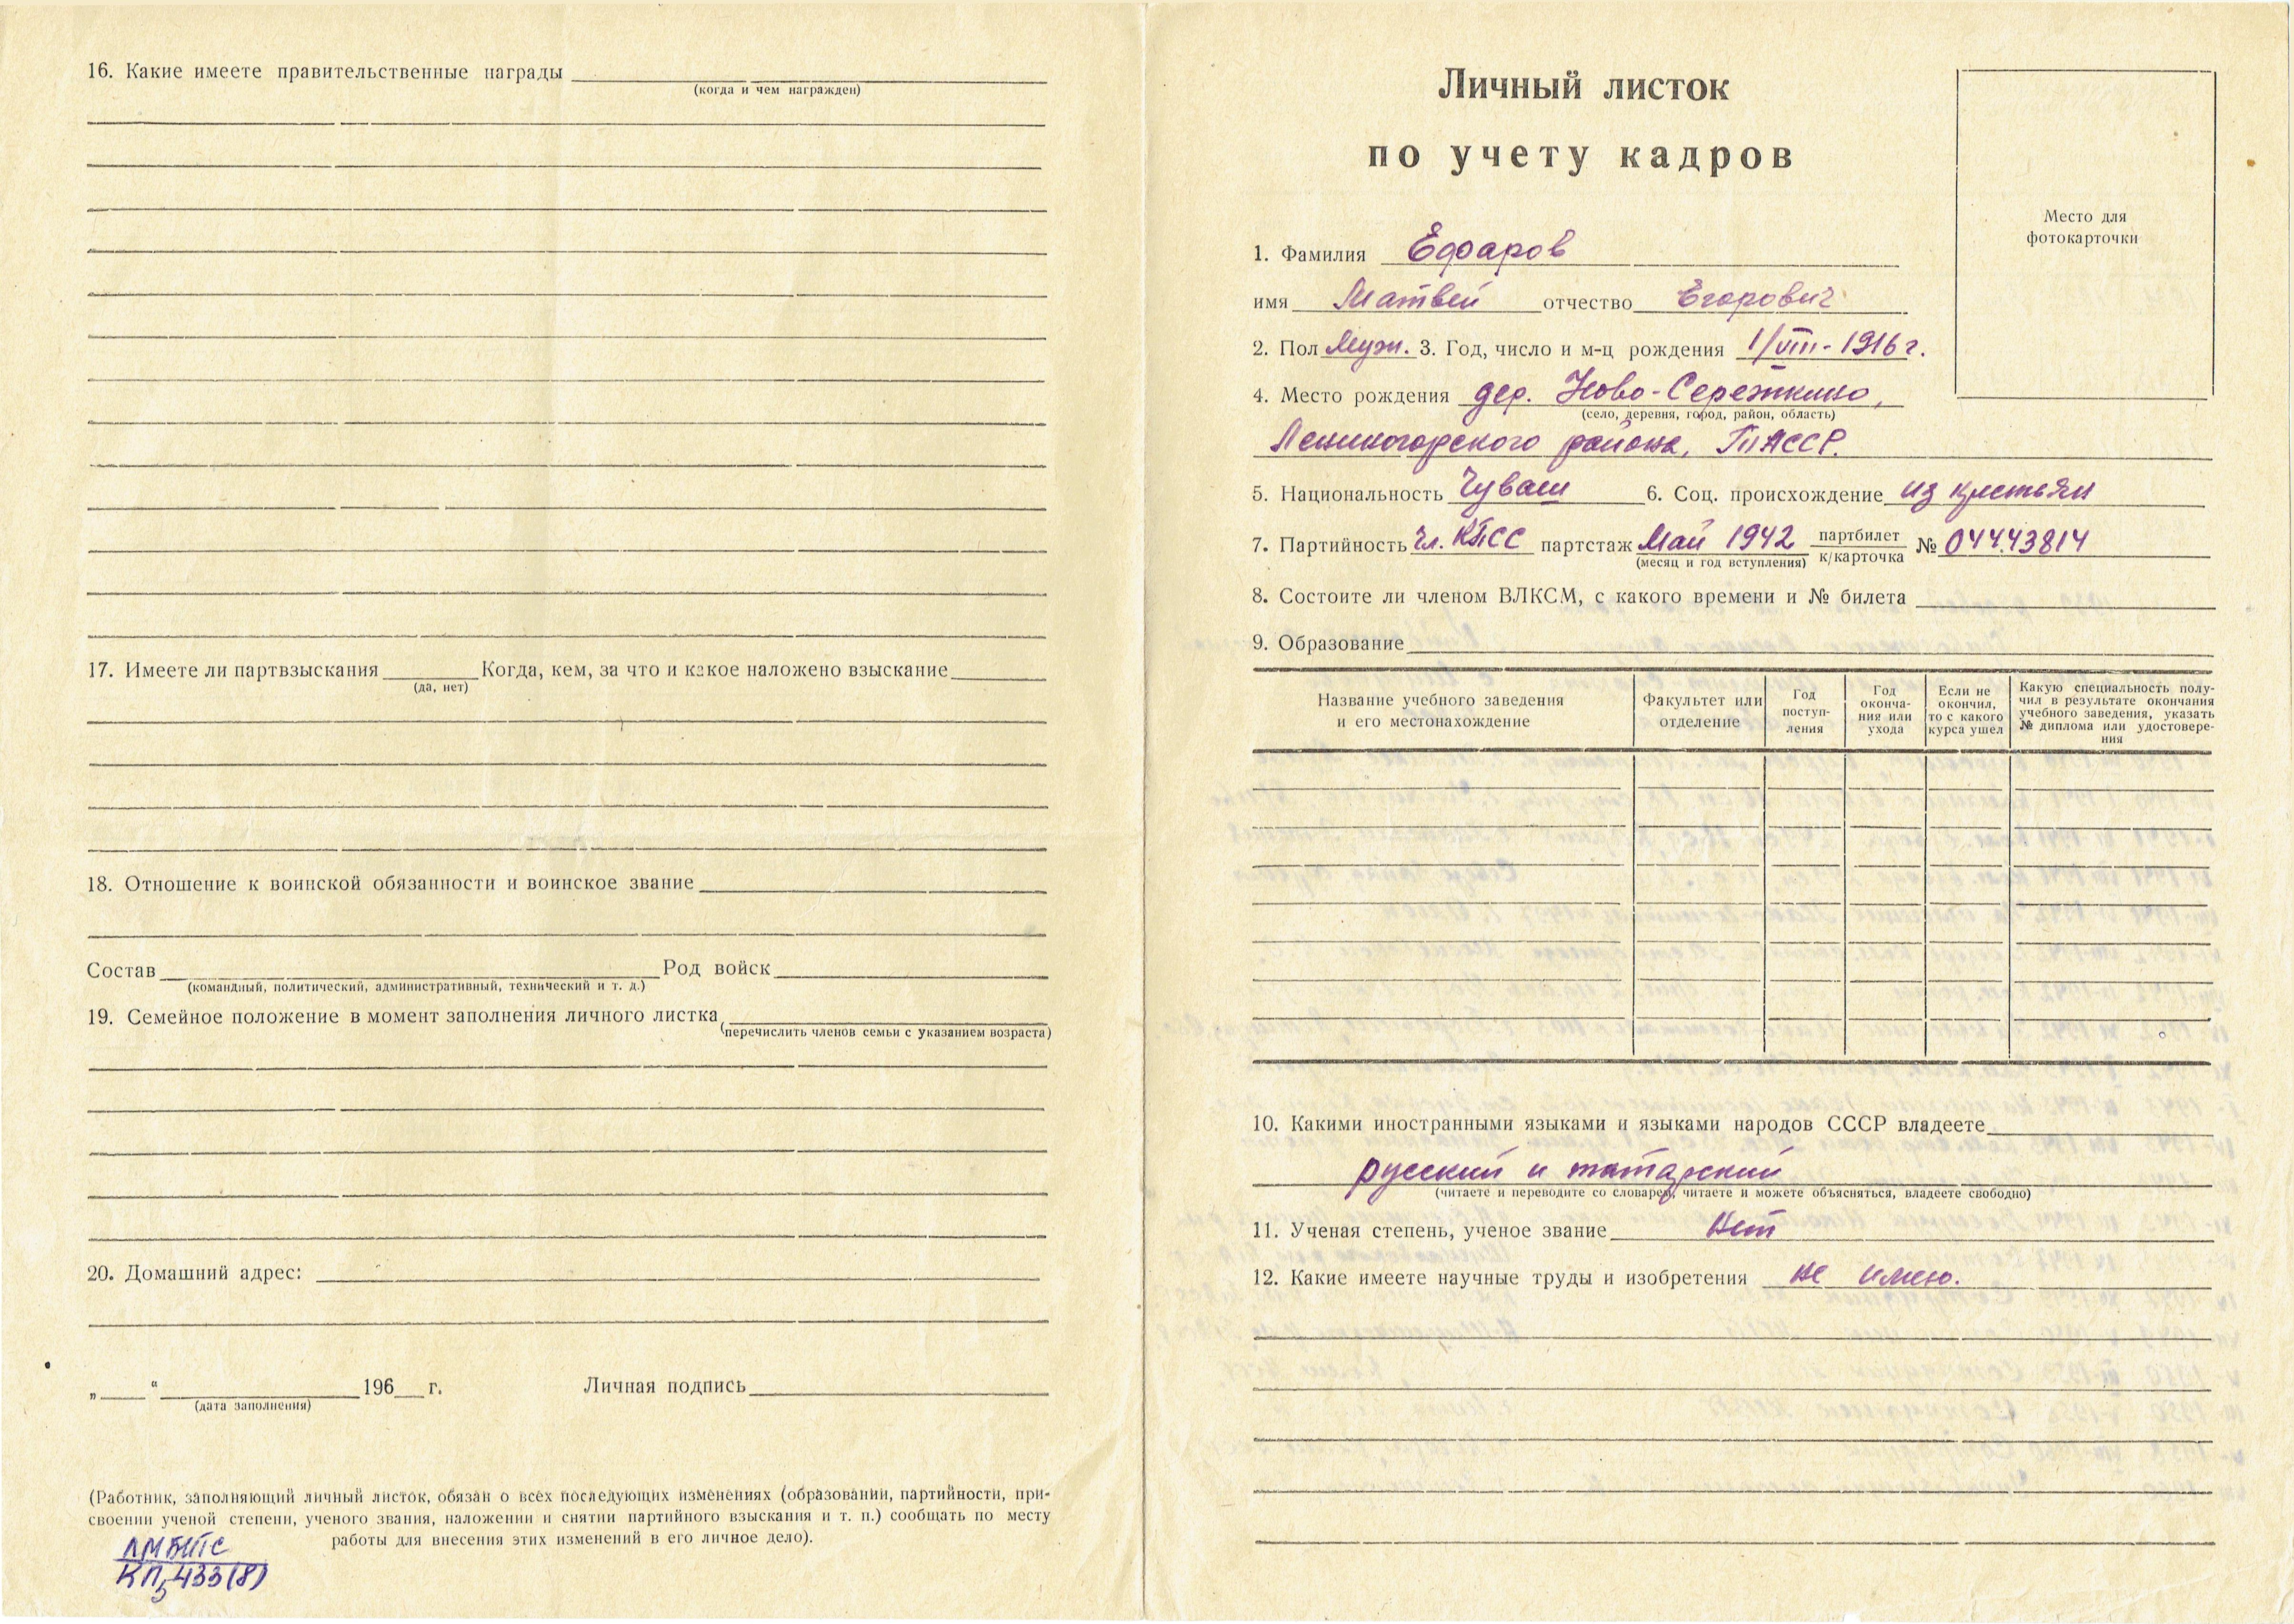 16. Какие имеете правительственные награды
(когда и чем награжден)
17. Имеете ли партвзыскания Когда, кем, за что и какое наложено взыскание
(да, нет)
18. Отношение к воинской обязанности и воинское звание
Состав Род войск
(командный, политический, административный, технический и т. д.)
19. Семейное положение в момент заполнения личного листка
(перечислить членов семьи с указанием возраста)
20. Домашний адрес:
„ “ 196 г. Личная подпись
(дата заполнения)
(Работник, заполняющий личный листок, обязан о всех последующих изменениях (образовании, партийности, при-
своении ученой степени, ученого звания, наложении и снятии партийного взыскания и т. п.) сообщать по месту
работы для внесения этих изменений в его личное дело).
ЛМБИТС
КП 433(8)
5
Личный листок
по учету кадров
Место для
фотокарточки
1. Фамилия Ефаров
имя Матвей отчество Егорович
2. Пол Муж. 3. Год, число и м-ц рождения 1/VIII-1916 г.
4. Место рождения дер. Ново-Сережкино,
(село, деревня, город, район, область)
Лениногорского района, ТАССР.
5. Национальность Чуваш 6. Соц. происхождение из крестьян
7. Партийность Чл. КПСС партстаж Май 1942 партбилет к/карточка № 04443814
(месяц и год вступления)
8. Состоите ли членом ВЛКСМ, с какого времени и № билета
9. Образование
Название учебного заведения и его местонахождение
Факультет или отделение
Год поступ-ления
Год оконча-ния или ухода
Если не окончил, то с какого курса ушел
Какую специальность полу-чил в результате окончания учебного заведения, указать № диплома или удостовере-ния
10. Какими иностранными языками и языками народов СССР владеете
русский и татарский
(читаете и переводите со словарем, читаете и можете объясняться, владеете свободно)
11. Ученая степень, ученое звание Нет
12. Какие имеете научные труды и изобретения не имею.